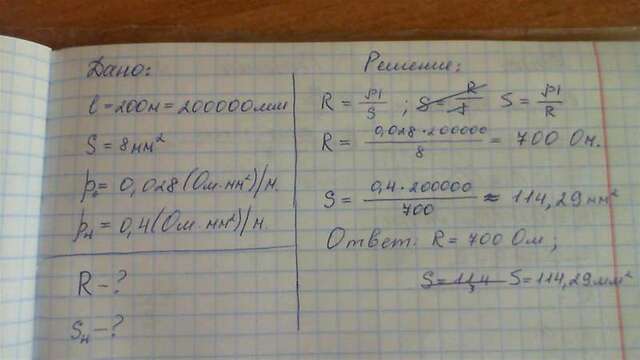 Дано:
l = 200м = 200000мм
S = 8мм²
ρ₀ = 0,028 (Ом·мм²)/м.
ρн = 0,4 (Ом·мм²)/м.
R – ?
Sн – ?
Решение:
R = ρl/S ; S = R/ρ S = ρl/R
R = 0,028·200000/8 = 700 Ом.
S = 0,4·200000/700 ≈ 114,29мм²
Ответ: R = 700 Ом ;
S = 114 S = 114,29мм²